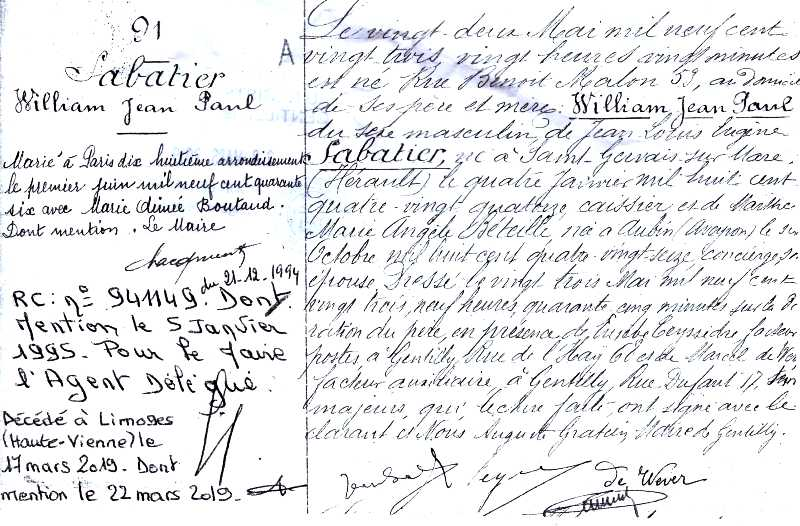 91
A
Sabatier
William Jean Paul
Marié à Paris dix huitième arrondissement
le premier juin mil neuf cent quarante
six avec Marie Aimée Boutaud.
Dont mention. Le Maire
RC: n° 941149 du 21-12-1994
Dont
Mention le 5 Janvier
1995. Pour le Maire
l'Agent Délégué.
Décédé à Limoges
(Haute-Vienne) le
17 mars 2019. Dont
mention le 22 mars 2019.
Le vingt-deux Mai mil neuf cent
vingt trois, vingt heures vingt minutes
est né Rue Benoît Malon 59, au domicile
de ses père et mère: William Jean Paul
du sexe masculin, de Jean Louis Eugène
Sabatier, né à Saint Gervais-sur-Mare,
(Hérault) le quatre Janvier mil huit cent
quatre-vingt quatorze caissier et de Marthe
Marie Angèle Béteille née à Aubin (Aveyron) le
Octobre mil huit cent quatre-vingt-seize concierge
épouse. Dressé le vingt trois Mai mil neuf cent
vingt trois, neuf heures, quarante cinq minutes sur la
ration du père, en présence de Teyssèdre facteur
postes à Gentilly, Rue de l'Hay et de Marcel de
facteur auxiliaire, à Gentilly, Rue 17,
majeurs, qui, lecture faite, ont signé avec le
clarant et Nous Auguste Gratien Maire de Gentilly.
de Wever